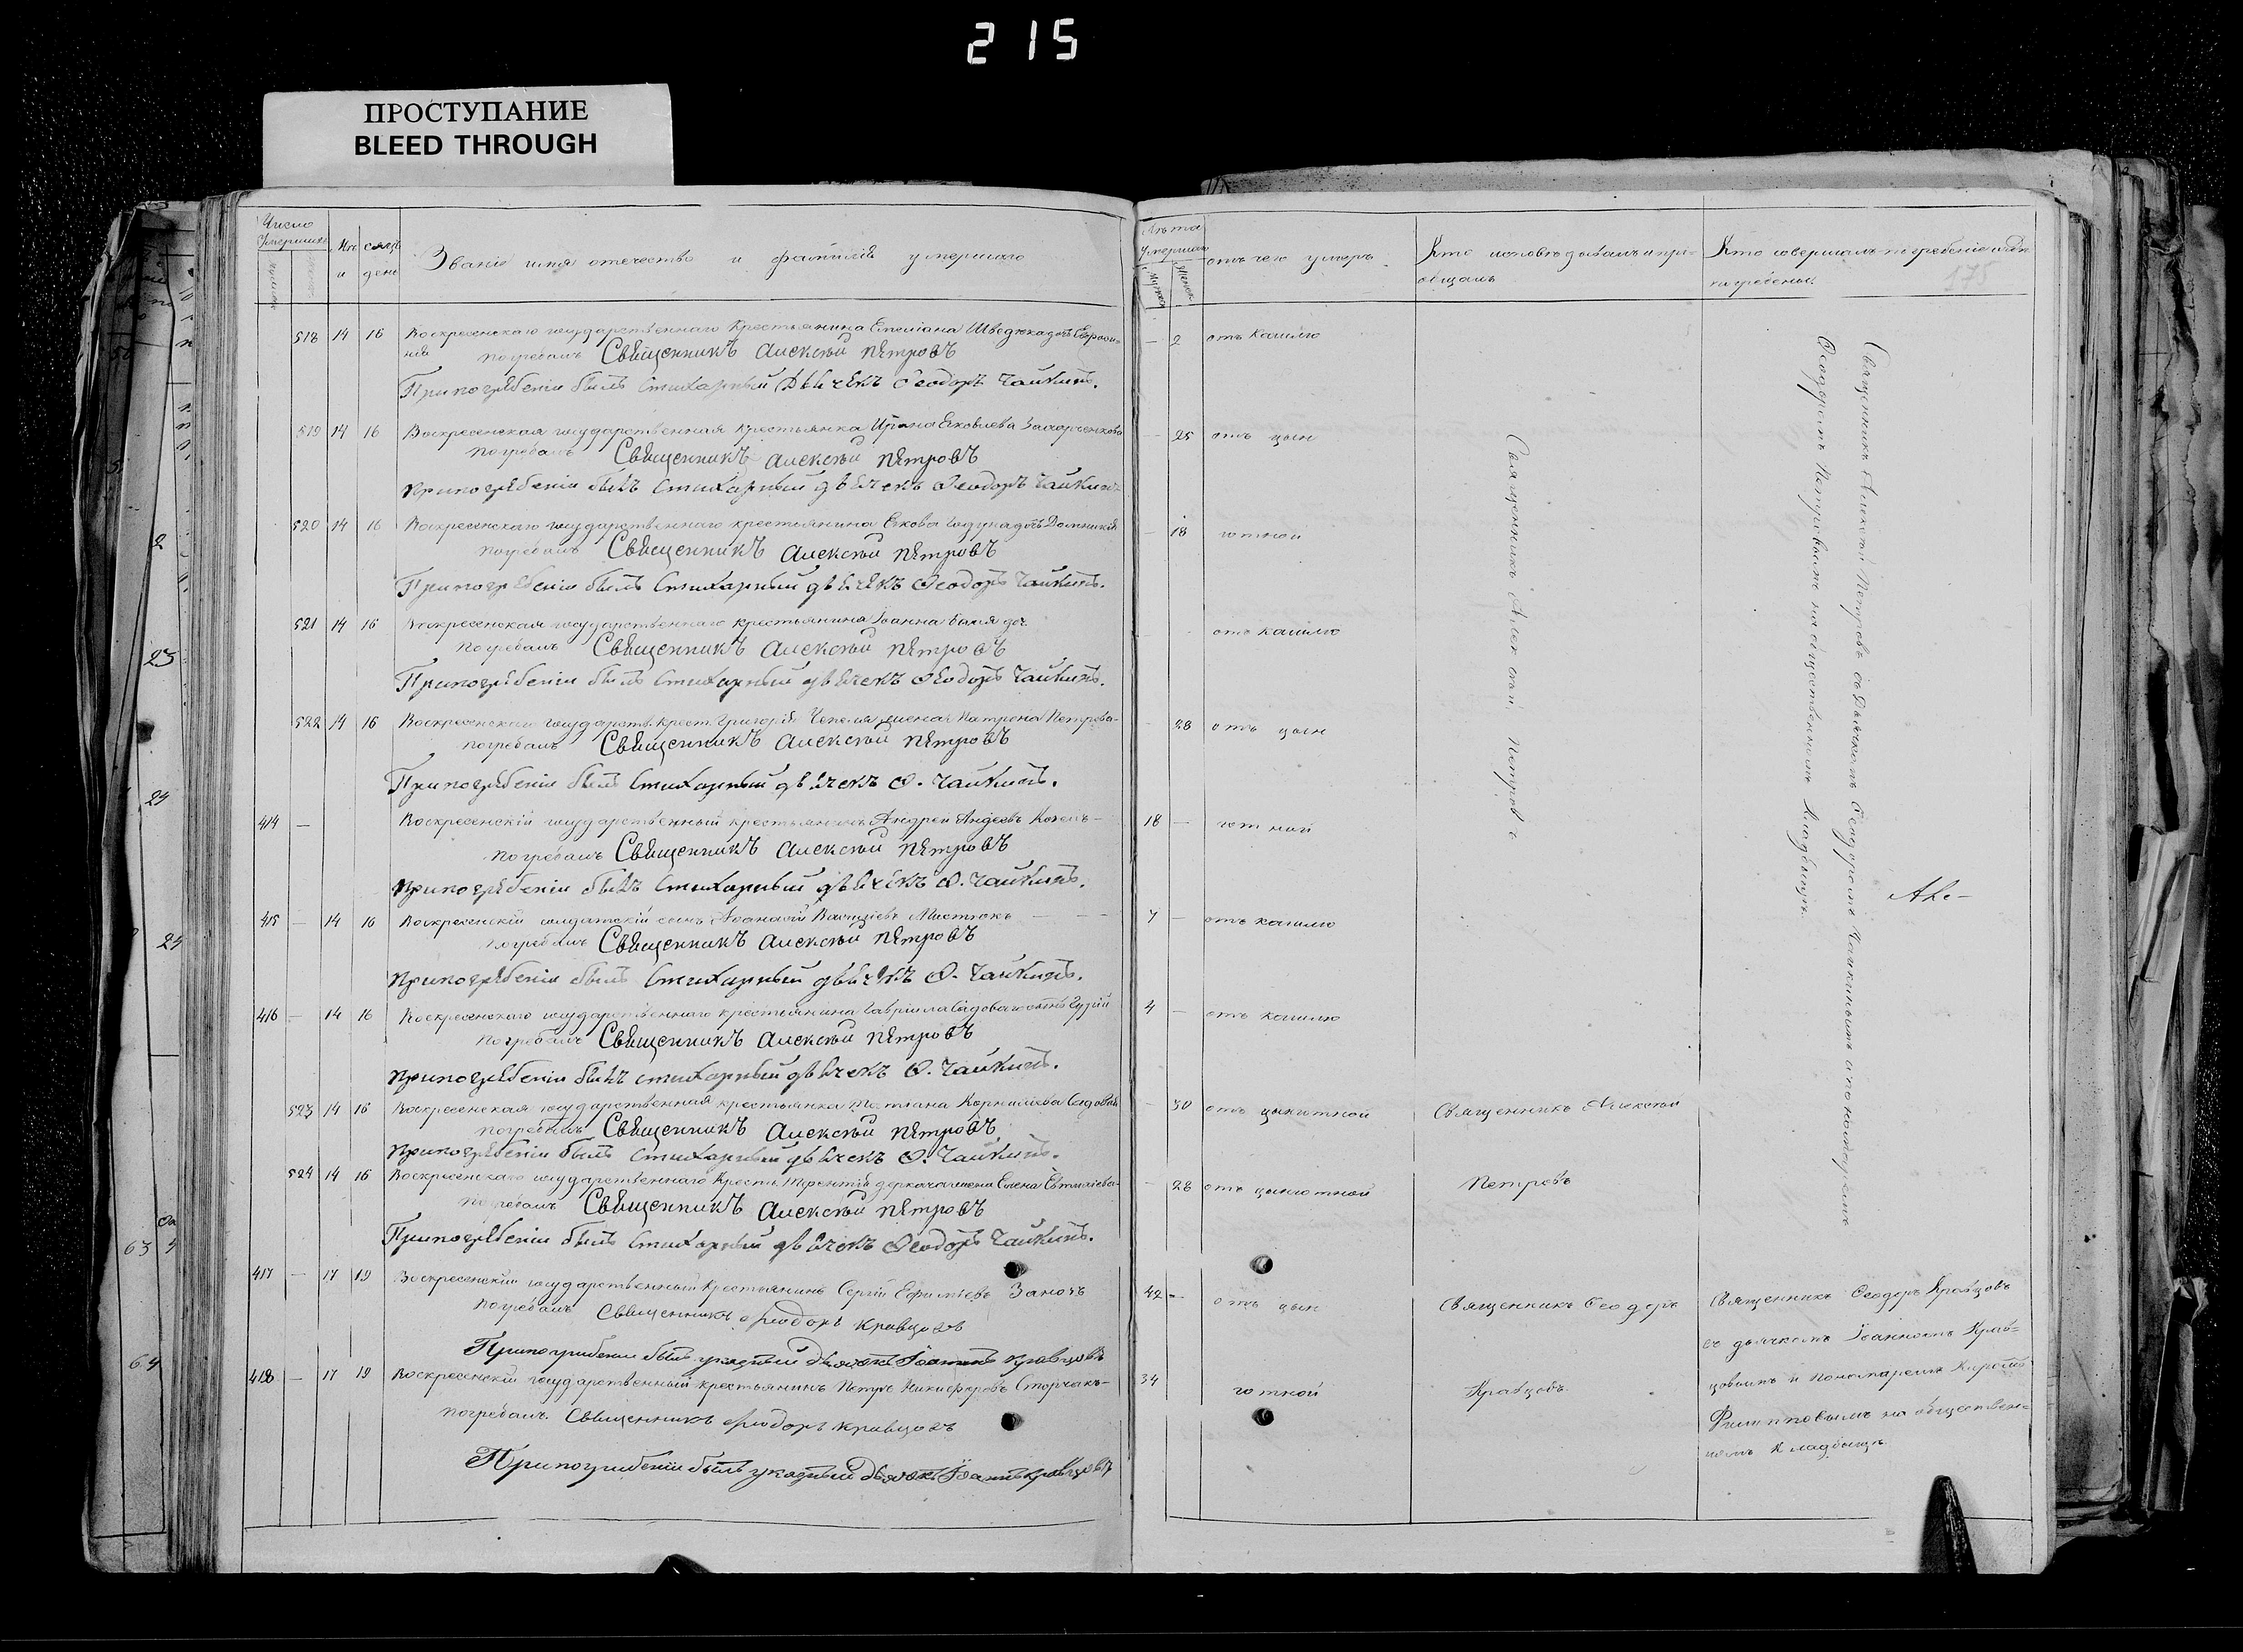 215
ПРОСТУПАНИЕ
BLEED THROUGH
Число умершихъ
Мѣсяцъ и день
Званіе имя отечество и фамилія умершаго
Лѣта умершаго
Мужеск
Женск
отъ чего умеръ
Кто исповѣдывалъ и пріобщалъ
Кто совершалъ погребеніе и гдѣ погребены
175
518 14 16 Воскресенскаго государственнаго крестьянина Емеліана Шведюка дочь Евфросинія — 2 отъ кашлю
погребалъ Священникъ Алексѣй Петровъ
При погребеніи былъ стихарный дьячекъ Ѳеодоръ Чайкинъ.
519 14 16 Воскресенская государственная крестьянка Ирина Яковлева — 25 отъ цын
погребалъ Священникъ Алексѣй Петровъ
При погребеніи былъ стихарный дьячекъ Ѳеодоръ Чайкинъ
520 14 16 Воскресенскаго государственнаго крестьянина Якова дочь Домникія — 18 готной
погребалъ Священникъ Алексѣй Петровъ
При погребеніи былъ стихарный дьячекъ Ѳеодоръ Чайкинъ.
521 14 16 Воскресенская государственнаго крестьянина Іоанна доч отъ кашлю
погребалъ Священникъ Алексѣй Петровъ
При погребеніи былъ стихарный дьячекъ Ѳеодоръ Чайкинъ.
522 14 16 Воскресенскаго государств. крест. Григорія Чепеля жена Матрона Петрова — 28 отъ цын
погребалъ Священникъ Алексѣй Петровъ
При погребеніи былъ стихарный дьячекъ Ѳ. Чайкинъ.
414 — Воскресенскій государственный крестьянинъ Андрей Андеевъ 18 — готной
погребалъ Священникъ Алексѣй Петровъ
При погребеніи былъ стихарный дьячекъ Ѳ. Чайкинъ.
415 — 14 16 Воскресенскій солдатскій сынъ Аѳанасій Василіевъ 7 — отъ кашлю
погребалъ Священникъ Алексѣй Петровъ
При погребеніи былъ стихарный дьячекъ Ѳ. Чайкинъ.
416 — 14 16 Воскресенскаго государственнаго крестьянина Гавріила Садоваго сынъ Гурій 4 — отъ кашлю
погребалъ Священникъ Алексѣй Петровъ
При погребеніи былъ стихарный дьячекъ Ѳ. Чайкинъ.
523 14 16 Воскресенская государственная крестьянка Татіана Корниліева Садовая — 50 отъ цынготной Священникъ Алексѣй
погребалъ Священникъ Алексѣй Петровъ
При погребеніи былъ стихарный дьячекъ Ѳ. Чайкинъ.
524 14 16 Воскресенскаго государственнаго крестьян. Терентія Деркача жена Елена — 28 отъ цынготной Петровъ
погребалъ Священникъ Алексѣй Петровъ
При погребеніи былъ стихарный дьячекъ Ѳеодоръ Чайкинъ.
417 — 17 19 Воскресенскій государственный крестьянинъ Сергій Ефимьевъ 42 — отъ цын Священникъ Ѳеодоръ
погребалъ Священникъ Ѳеодоръ Кравцовъ
При погребеніи былъ указный дьячокъ Іоаннъ Кравцовъ
418 — 17 19 Воскресенскій государственный крестьянинъ Петръ Никифоровъ Сторчакъ 34 готной Кравцовъ.
погребалъ. Священникъ Ѳеодоръ Кравцовъ
При погребеніи былъ указный дьячокъ Іоаннъ Кравцовъ
Священникъ Алексѣй Петровъ
Священникъ Алексѣй Петровъ съ дьячкомъ Ѳеодоромъ Чайкинымъ и пономаремъ
Ѳеодоромъ Петровымъ на общественномъ кладбищѣ.
Священникъ Ѳеодоръ Кравцовъ
съ дьячкомъ Іоанномъ Крав=
цовымъ и пономаремъ
Филипповымъ на обществен=
номъ кладбищѣ
2
23
24
24
63
64